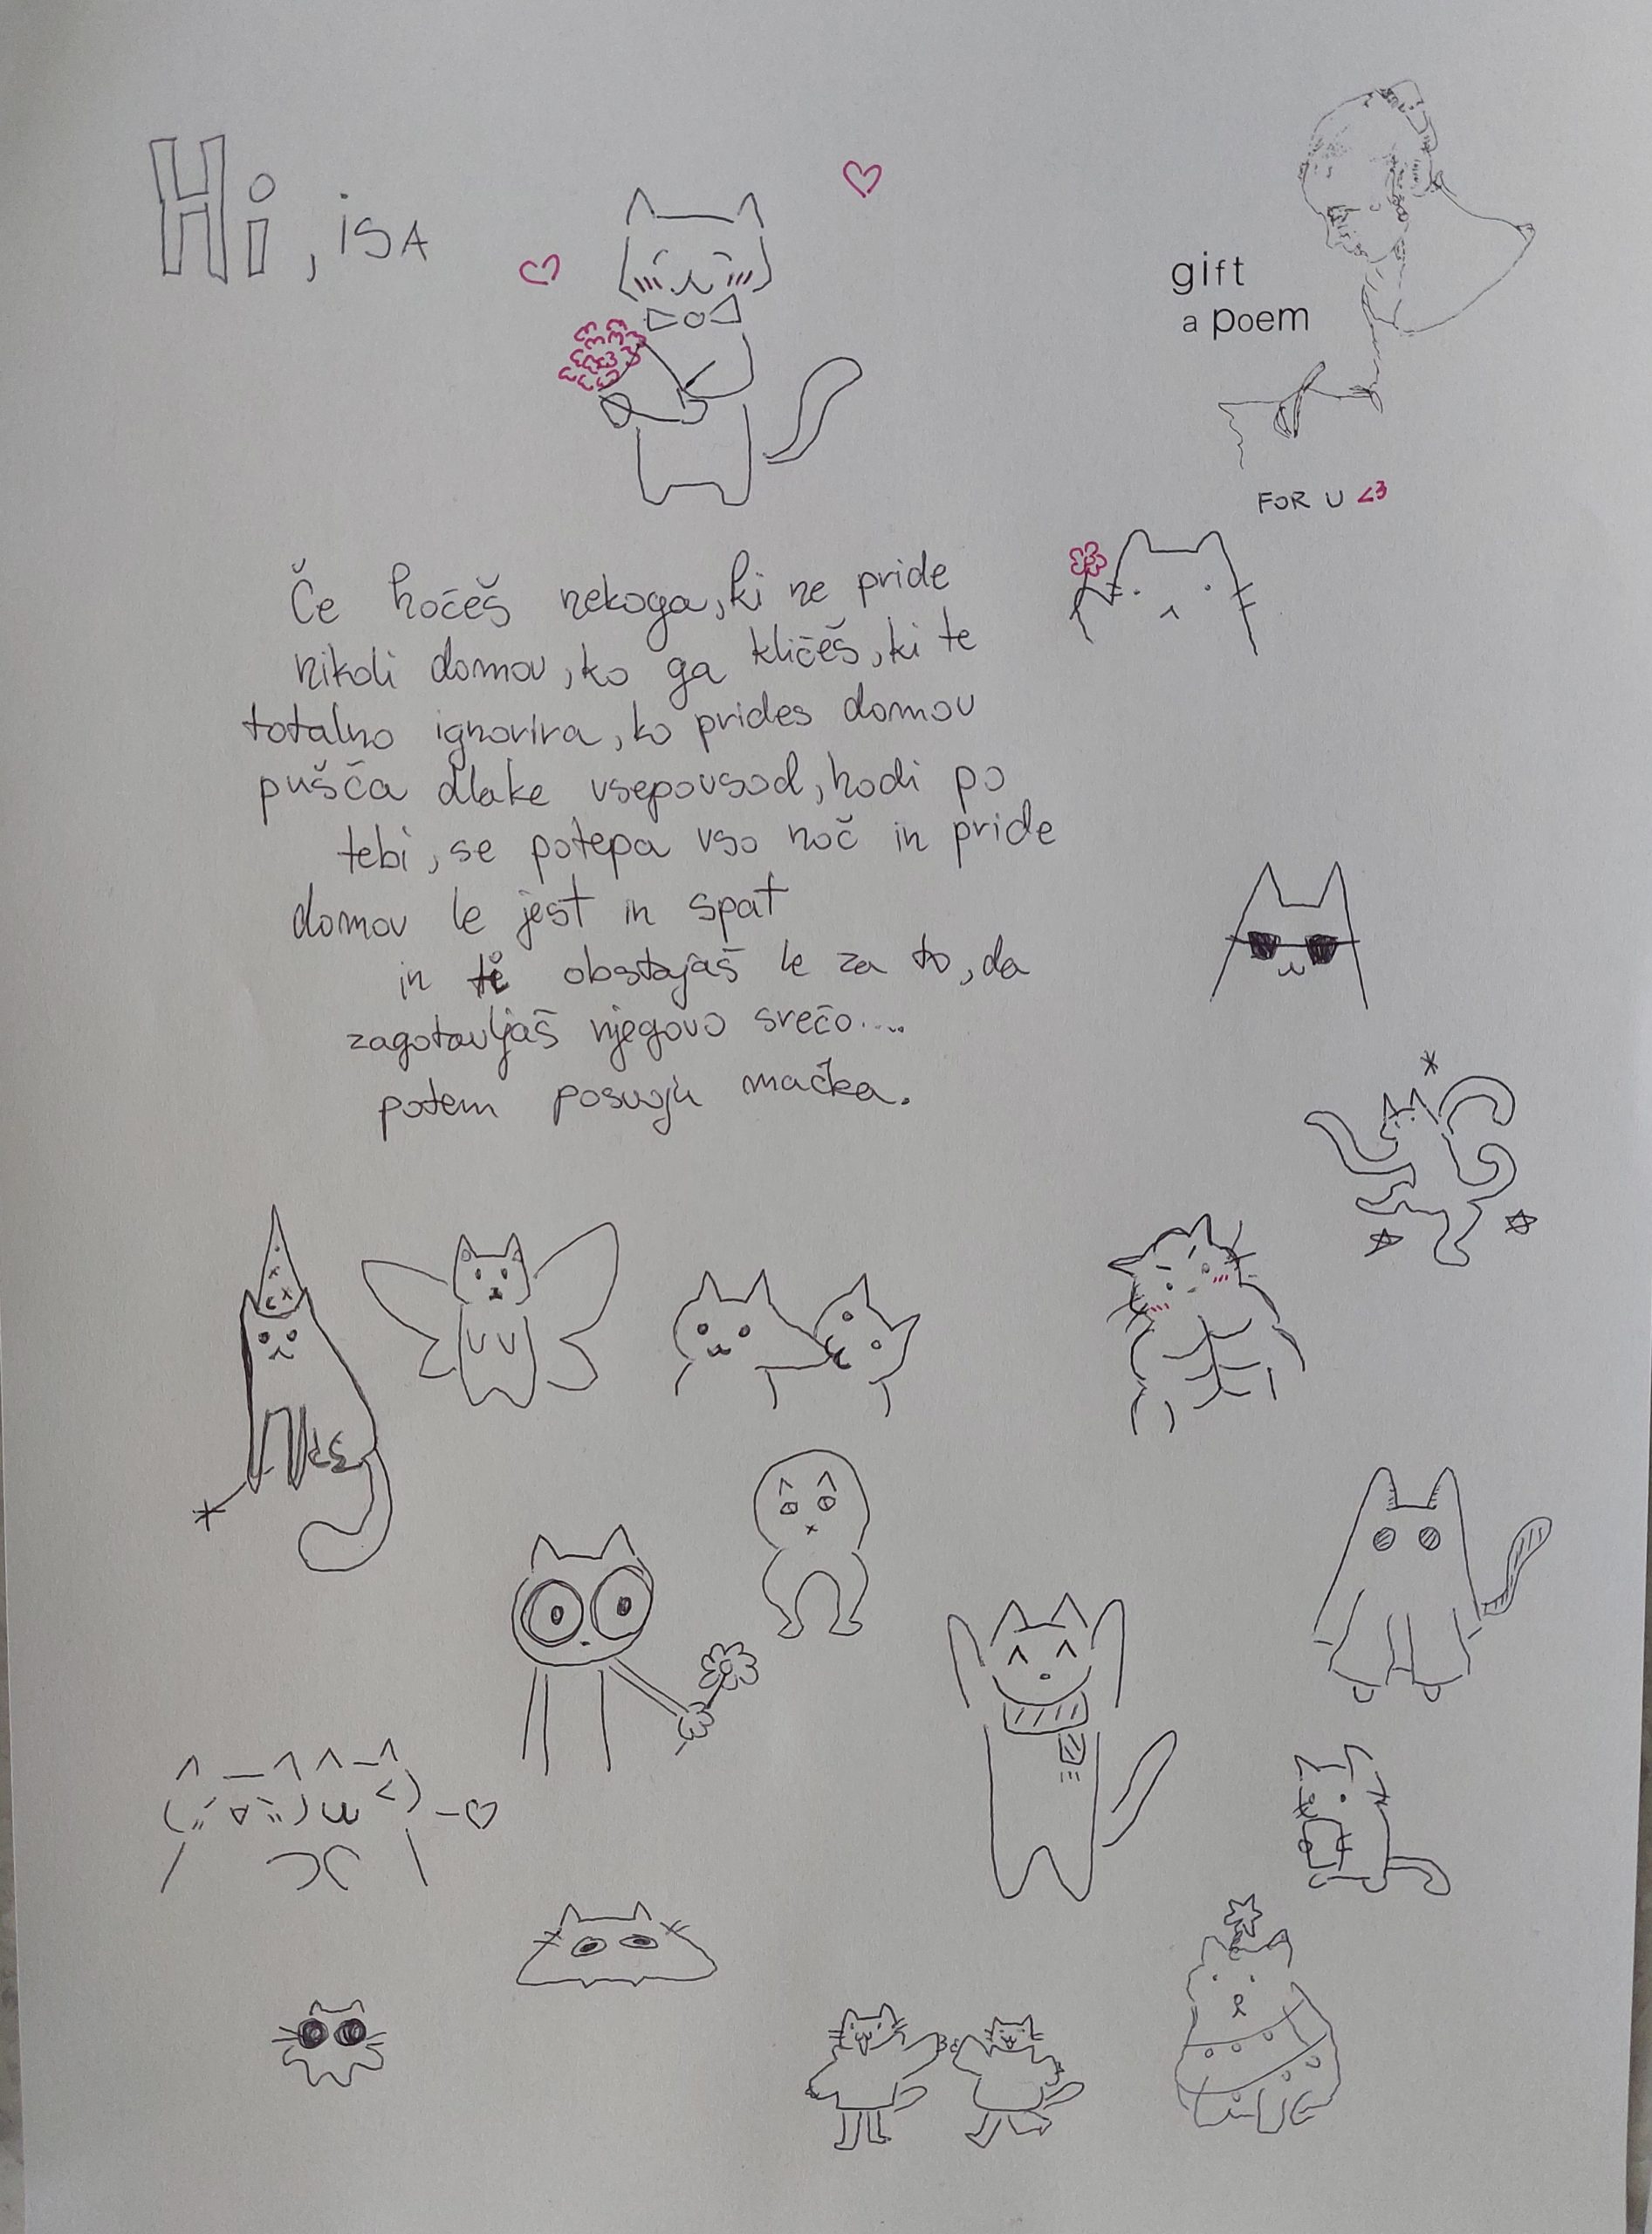 Hi, isA
gift
a poem
FOR U <3
Če hočeš nekoga, ki ne pride
nikoli domov, ko ga kličeš, ki te
totalno ignorira, ko prides domov
pušča dlake vsepovsod, hodi po
tebi, se potepa vso noč in pride
domov le jest in spat
in ti obstajaš le za to, da
zagotavljaš njegovo srečo....
potem posvoji mačka.